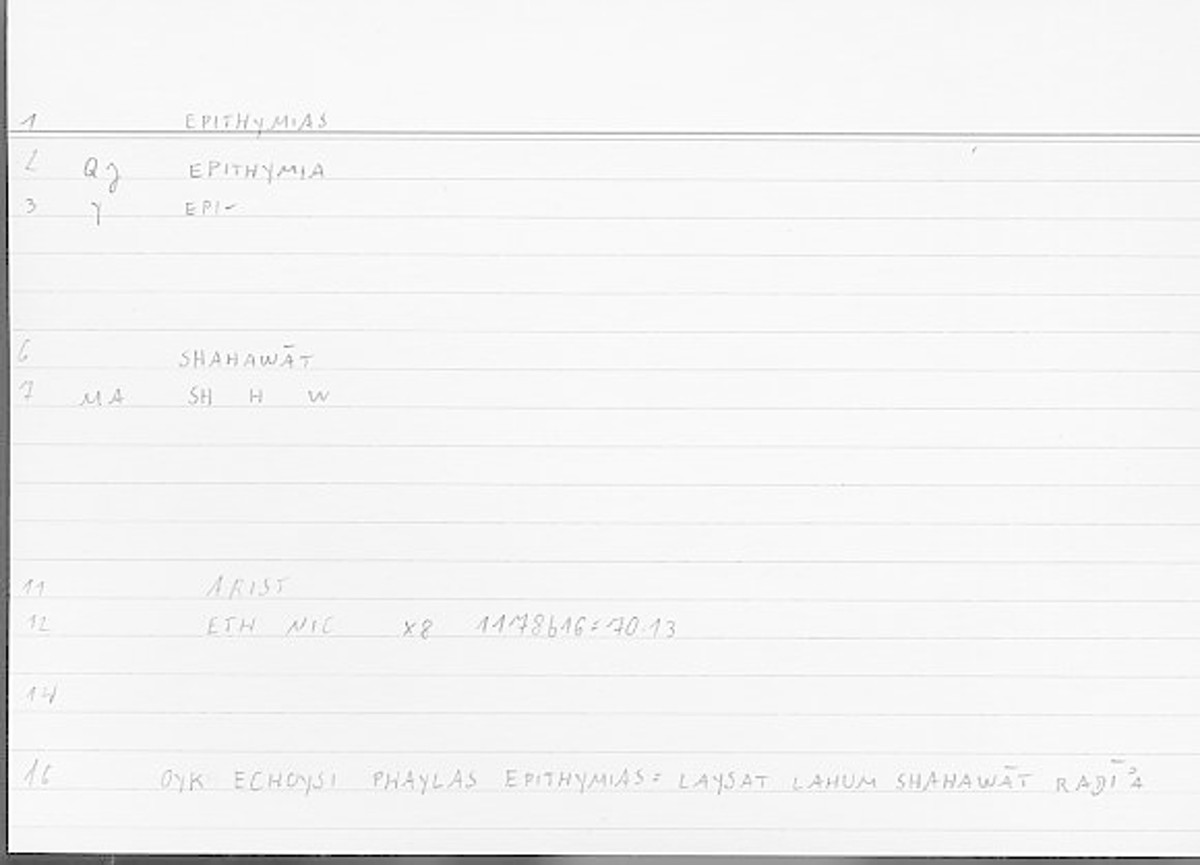 1 EPITHYMIAS
2 Qj EPITHYMIA
3 γ EPI-
6 SHAHAWĀT
7 MA SH H W
11 ARIST
12 ETH NIC X8 1178b16=70.13
14
16 OYK ECHOYSI PHAYLAS EPITHYMIAS= LAYSAT LAHUM SHAHAWĀT RADĪʾA